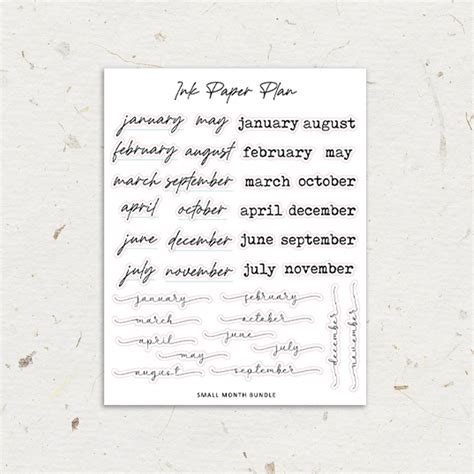 Ink Paper Plan
january may january august
february august february may
march september march october
april october april december
june december june september
july november july november
january february
march october
april june
may july
august september
december
november
SMALL MONTH BUNDLE